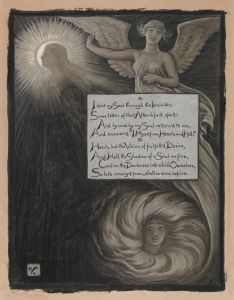 I sent my Soul through the Invisible,
Some letter of that After-life to spell:
And by and by my Soul return'd to me,
And answer'd "I Myself am Heav'n and Hell:"
Heav'n but the Vision of fulfill'd Desire,
And Hell the Shadow of a Soul on fire,
Cast on the Darkness into which Ourselves,
So late emerg'd from, shall so soon expire.